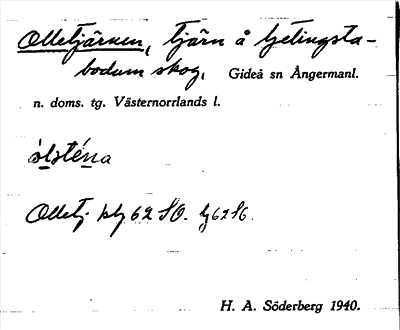 Olletjärnen, tjärn å Getingsta-
bodum skog, Gideå sn Ångermanl.
n. doms. tg. Västernorrlands l.
ólsténa
Olletj. blz 62 SO.
H. A. Söderberg 1940.